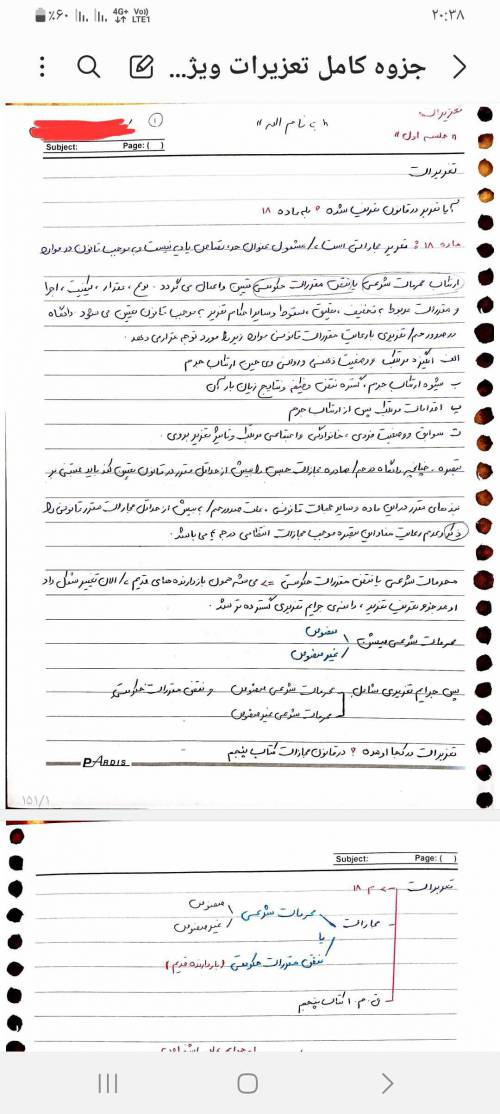 ٪۶۰ 4G+ Vo) LTE1 ۲۰:۳۸
جزوه کامل تعزیرات ویژ...
تعزیرات
"جلسه اول"
"به نام الله"
۱
Subject: Page: ( )
تعزیرات
آیا تعزیر در قانون تعریف شده ؟ بله ماده ۱۸
ماده ۱۸ : تعزیر مجازاتی است که مشمول عنوان حد، قصاص یا دیه نیست و به موجب قانون در موارد
ارتکاب محرمات شرعی یا نقض مقررات حکومتی تعیین و اعمال می گردد. نوع، مقدار، کیفیت اجرا
و مقررات مربوط به تخفیف، تعلیق، سقوط و سایر احکام تعزیر به موجب قانون تعیین می شود دادگاه
در صدور حکم تعزیری با رعایت مقررات قانونی موارد زیر را مورد توجه قرار می دهد.
الف انگیزه مرتکب و وضعیت ذهنی و روانی وی حین ارتکاب جرم
ب شیوه ارتکاب جرم، گستره نقض وظیفه و نتایج زیان بار آن
پ اقدامات مرتکب پس از ارتکاب جرم
ت سوابق و وضعیت فردی، خانوادگی و اجتماعی مرتکب و تاثیر تعزیر بر وی.
تبصره، چنانچه دادگاه در حکم صادره مجازات حبس را بیش از حداقل مقرر در قانون تعیین کند باید مبتنی بر
بندهای مقرر در این ماده و سایر جهات قانونی، علت صدور حکم به بیش از حداقل مجازات مقرر قانونی را
ذکر کند عدم رعایت مفاد این تبصره موجب مجازات انتظامی درجه ۴ می باشد.
محرمات شرعی یا نقض مقررات حکومتی => می شه همون بازدارنده های قدیم که الان تغییر شکل داد
اومد جزو تعریف تعزیر، دامنه ی جرایم تعزیری گسترده تر شد.
محرمات شرعی میشن
منصوص
غیر منصوص
پس جرایم تعزیری شامل
محرمات شرعی منصوص و نقض مقررات حکومتی
محرمات شرعی غیر منصوص
تعزیرات در کجا اومده ؟ در قانون مجازات کتاب پنجم
PARDIS
۱۵۱/۱
Subject: Page: ( )
تعزیرات
م ۱۸
مجازات
محرمات شرعی
منصوص
غیر منصوص
یا
نقض مقررات حکومتی (بازدارنده قدیم)
ق.م.ا کتاب پنجم